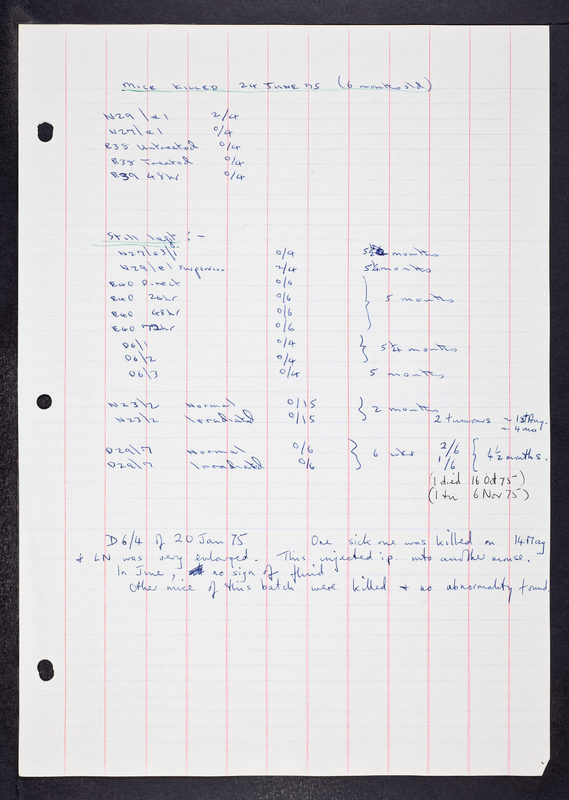 MICE KILLED 24 JUNE 75 (6 months old)
N29/e1 2/4
N27/e1 0/4
E38 Untreated 0/4
E38 Treated 0/4
E39 48hr 0/4
Still left :-
N27/e3/1 0/4 months
N29/e1 suspension 2/4 5½ months
E40 Direct 0/6
E40 24hr 0/6 5 months
E40 48hr 0/6
E40 72hr 0/6
D6/1 0/4 5¼ months
D6/2 0/4
D6/3 0/4 5 months
N23/2 Normal 0/15 2 months
N23/2 Irradiated 0/15 2 tumours ~ 1st Aug.
~ 4 mo
D29/7 Normal 0/6 6 wks 2/6 4½ months.
D29/7 Irradiated 0/6 1/6
(1 died 16 Oct 75)
(1 tu 6 Nov 75)
D6/4 of 20 Jan 75 One sick one was killed on 14 May
& LN was very enlarged. This injected i.p. into another mouse.
In June, no sign of fluid
Other mice of this batch were killed & no abnormality found.